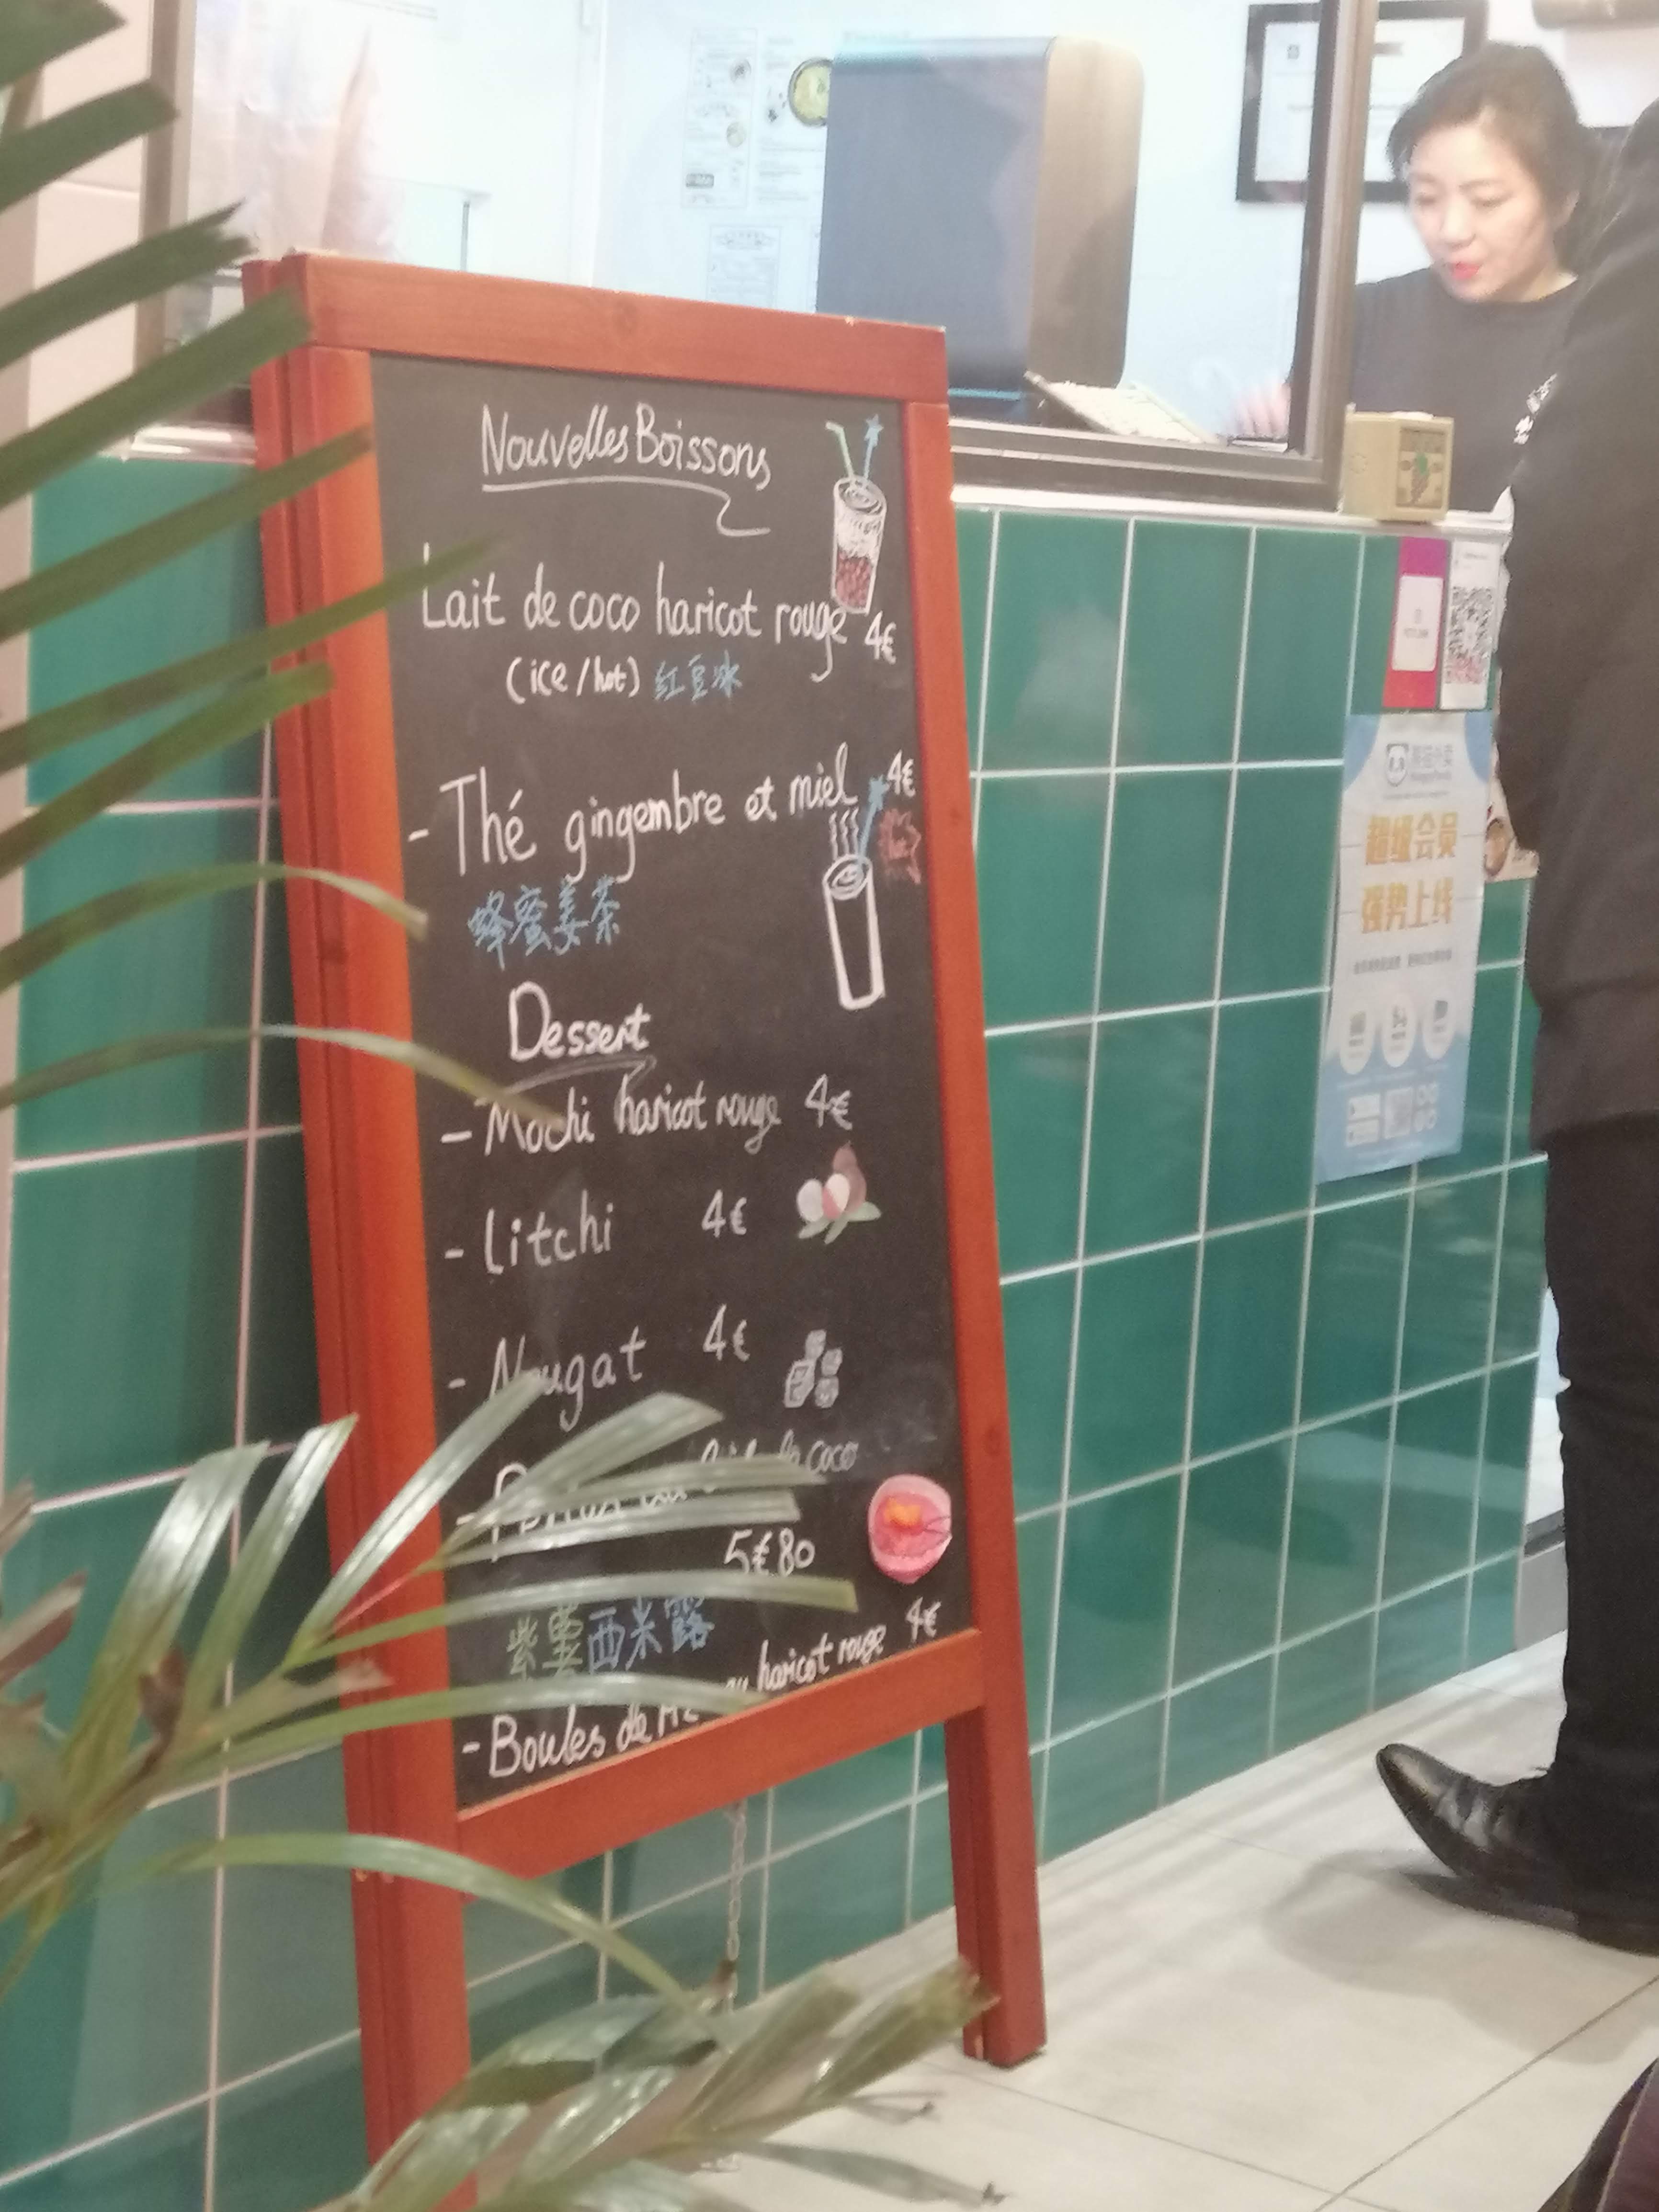 Nouvelles Boissons
Lait de coco haricot rouge 4€
(ice/hot) 红豆冰
- Thé gingembre et miel 4€
蜂蜜姜茶
Dessert
- Mochi haricot rouge 4€
- Litchi 4€
- Nougat 4€
coco
5€80
紫薯西米露
- Boules de haricot rouge 4€
超级会员
强势上线